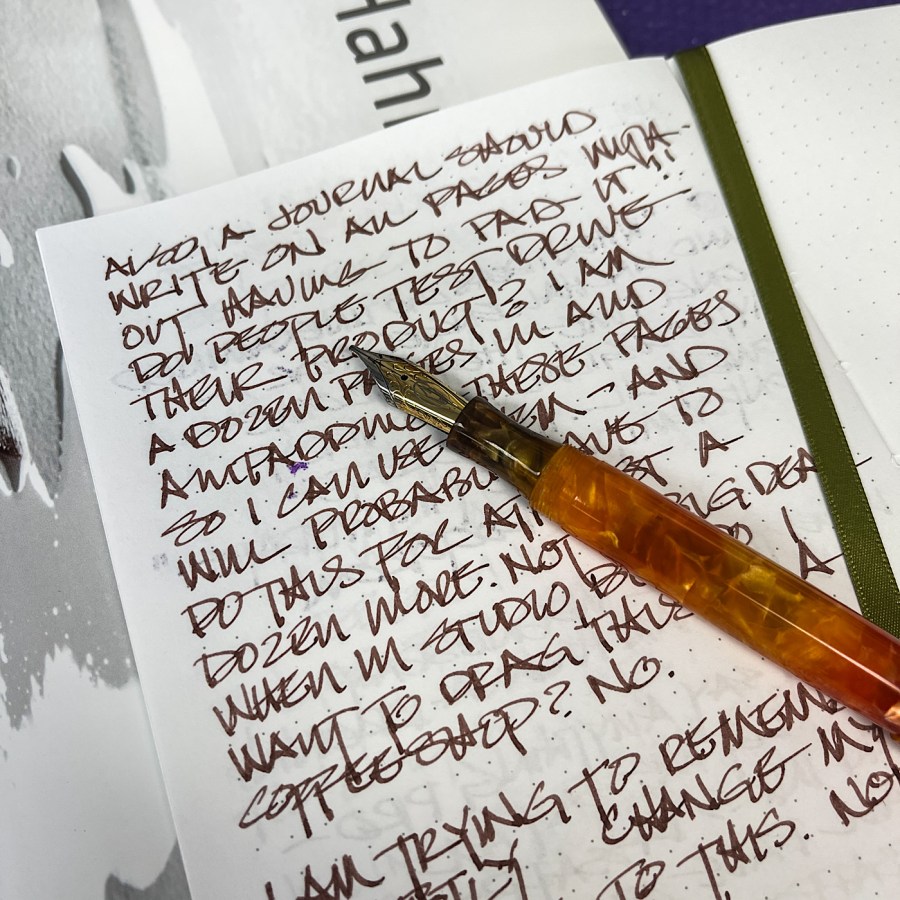 Hahn
ALSO, A JOURNAL SHOULD
WRITE ON ALL PAGES WITH
OUT HAVING TO PAD IT!!
DO PEOPLE TEST DRIVE
THEIR PRODUCT? I AM
A DOZEN PAGES IN AND
AM PADDING THESE PAGES
SO I CAN USE THEM - AND
WILL PROBABLY HAVE TO
DO THIS FOR AT LEAST A
DOZEN MORE. NOT A BIG DEAL
WHEN IN STUDIO BUT DO I
WANT TO DRAG THIS TO A
COFFEE SHOP? NO.
I AM TRYING TO REMEM
CHANGE MY
TO THIS. NO